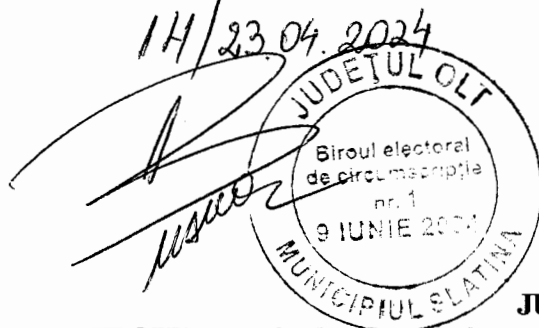 1H/23.04.2024
JUDEȚUL OLT
Biroul electoral
de circumscripție
nr. 1
9 IUNIE 2024
MUNICIPIUL SLATINA
JU